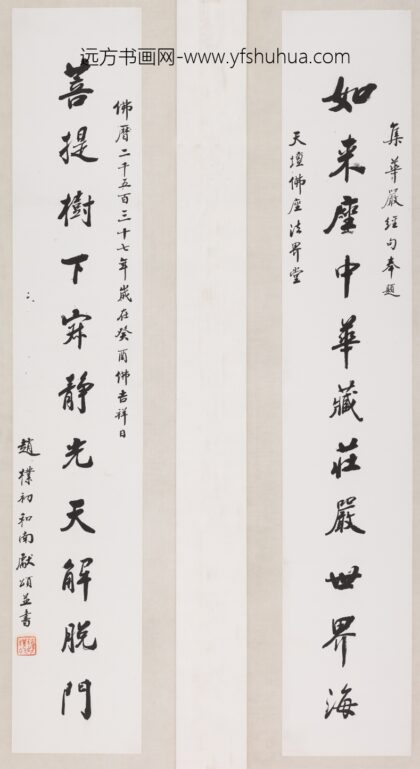 远方书画网-www.yfshuhua.com
集華嚴經句奉題
如来座中華藏莊嚴世界海
天壇佛座法界堂
佛曆二千五百三十七年歲在癸酉佛吉祥日
菩提樹下寂静光天解脱門
趙樸初和南獻頌並書